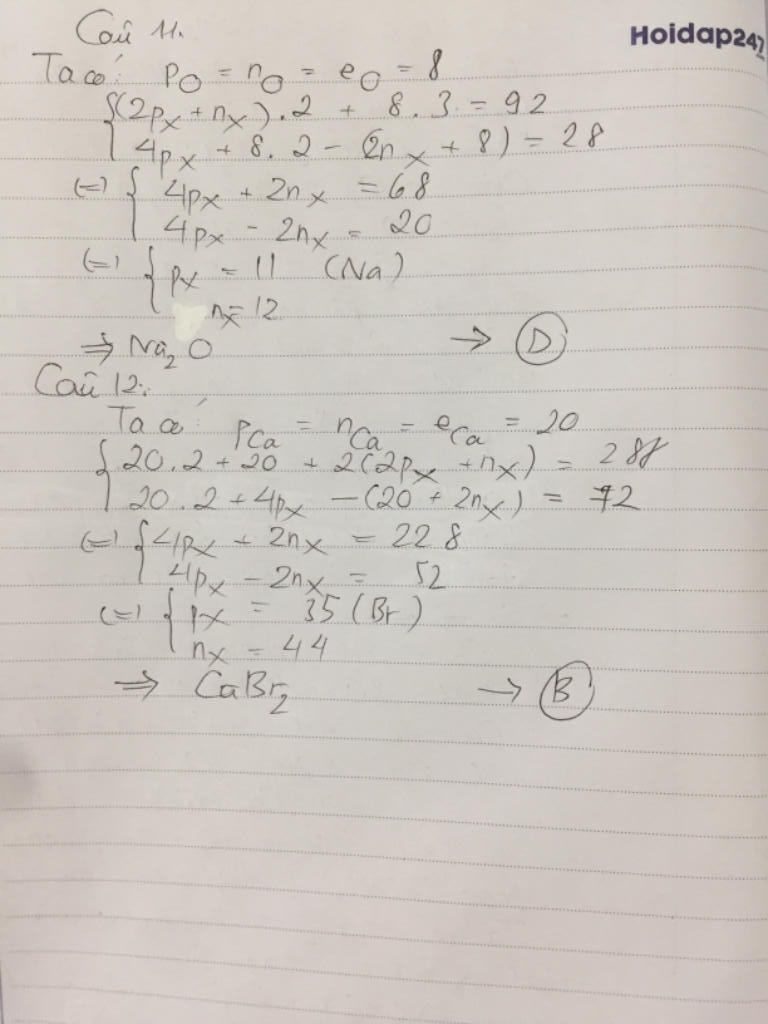 Câu 11.
Hoidap247
Ta có: pO = nO = eO = 8
{(2pX + nX).2 + 8.3 = 92
4pX + 8.2 - (2nX + 8) = 28
(=) { 4pX + 2nX = 68
4pX - 2nX = 20
(=) { pX = 11 (Na)
nX = 12
=> Na2O → D
Câu 12:
Ta có: pCa = nCa = eCa = 20
{ 20.2 + 20 + 2(2pX + nX) = 288
20.2 + 4pX - (20 + 2nX) = 72
(=) { 4pX + 2nX = 228
4pX - 2nX = 52
(=) { pX = 35 (Br)
nX = 44
=> CaBr2 → B